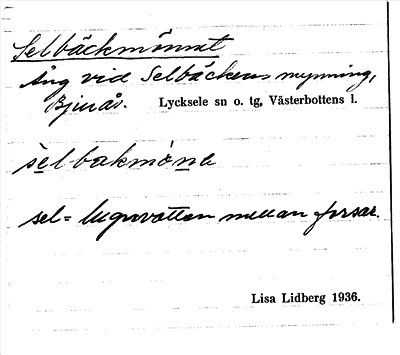 Selbäckmönnet
Äng vid Selbäckens mynning,
Bjurås. Lycksele sn o. tg, Västerbottens l.
selbakmöna
sel = lugnvatten mellan forsar.
Lisa Lidberg 1936.